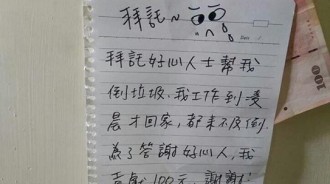 拜託~
拜託好心人士幫我
倒垃圾.我工作到凌
晨才回家,都來不及倒.
為了答謝好心人,我
貢獻100元,謝謝!